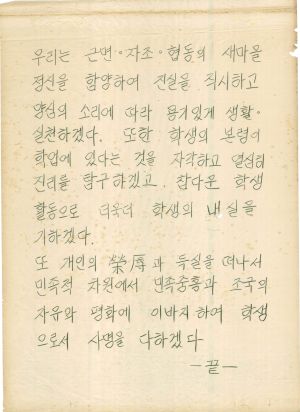 우리는 근면·자조·협동의 새마을
정신을 함양하여 진실을 직시하고
양심의 소리에 따라 용기있게 생활·
실천하겠다. 또한 학생의 본령이
학업에 있다는 것을 자각하고 열심히
진리를 탐구하겠고. 참다운 학생
활동으로 더욱더 학생의 내실을
기하겠다.
또 개인의 榮辱과 득실을 떠나서
민족적 차원에서 민족중흥과 조국의
자유와 평화에 이바지하여 학생
으로서 사명을 다하겠다
—끝—